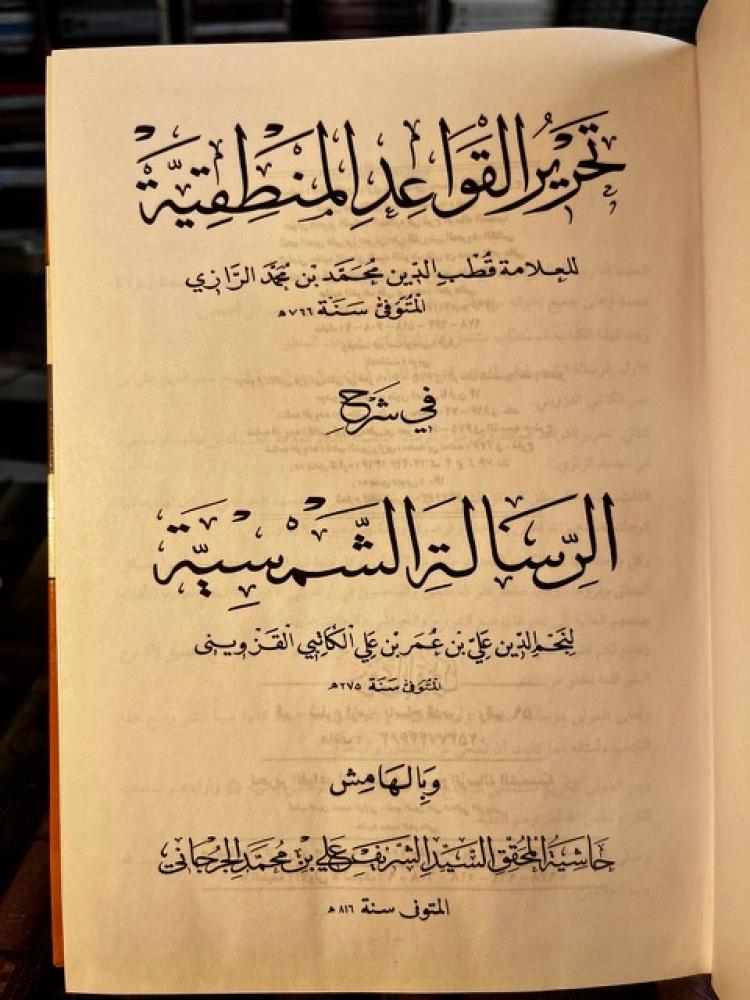 تحرير القواعد المنطقية
للعلامة قطب الدين محمد بن محمد الرازي
المتوفى سنة ٧٦٦ هـ
في شرح
الرسالة الشمسية
لنجم الدين علي بن عمر بن علي الكاتبي القزوينى
المتوفى سنة ٦٧٥ هـ
وبالهامش
حاشية المحقق السيد الشريف علي بن محمد الجرجانى
المتوفى سنة ٨١٦ هـ